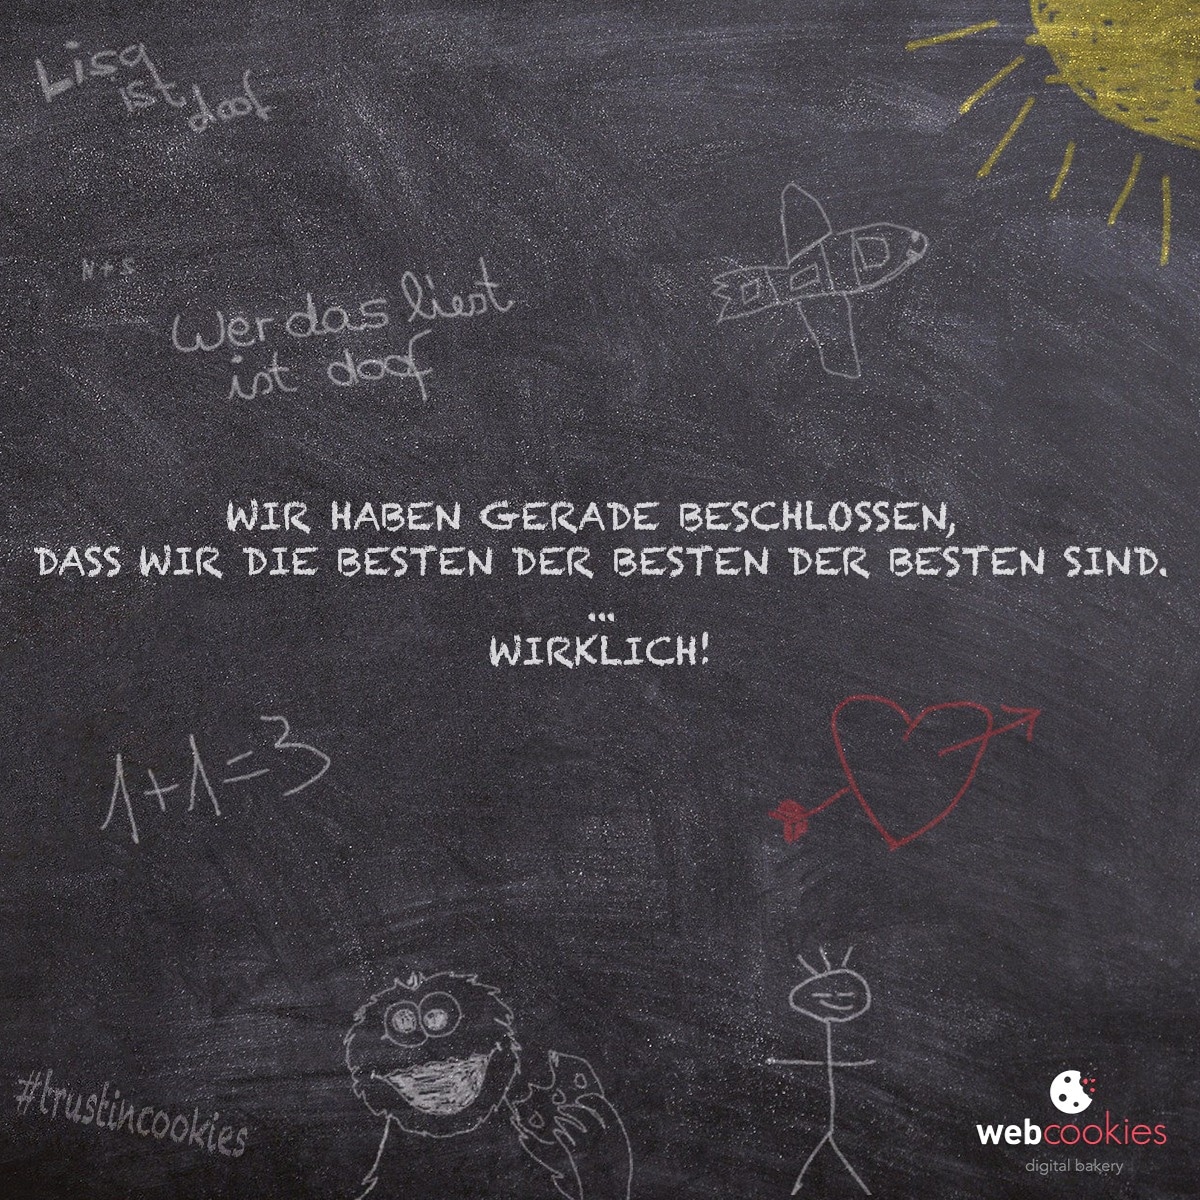 Lisa
ist
doof
N+S
Wer das liest
ist doof
WIR HABEN GERADE BESCHLOSSEN,
DASS WIR DIE BESTEN DER BESTEN DER BESTEN SIND.
...
WIRKLICH!
1+1=3
#trustincookies
webcookies
digital bakery